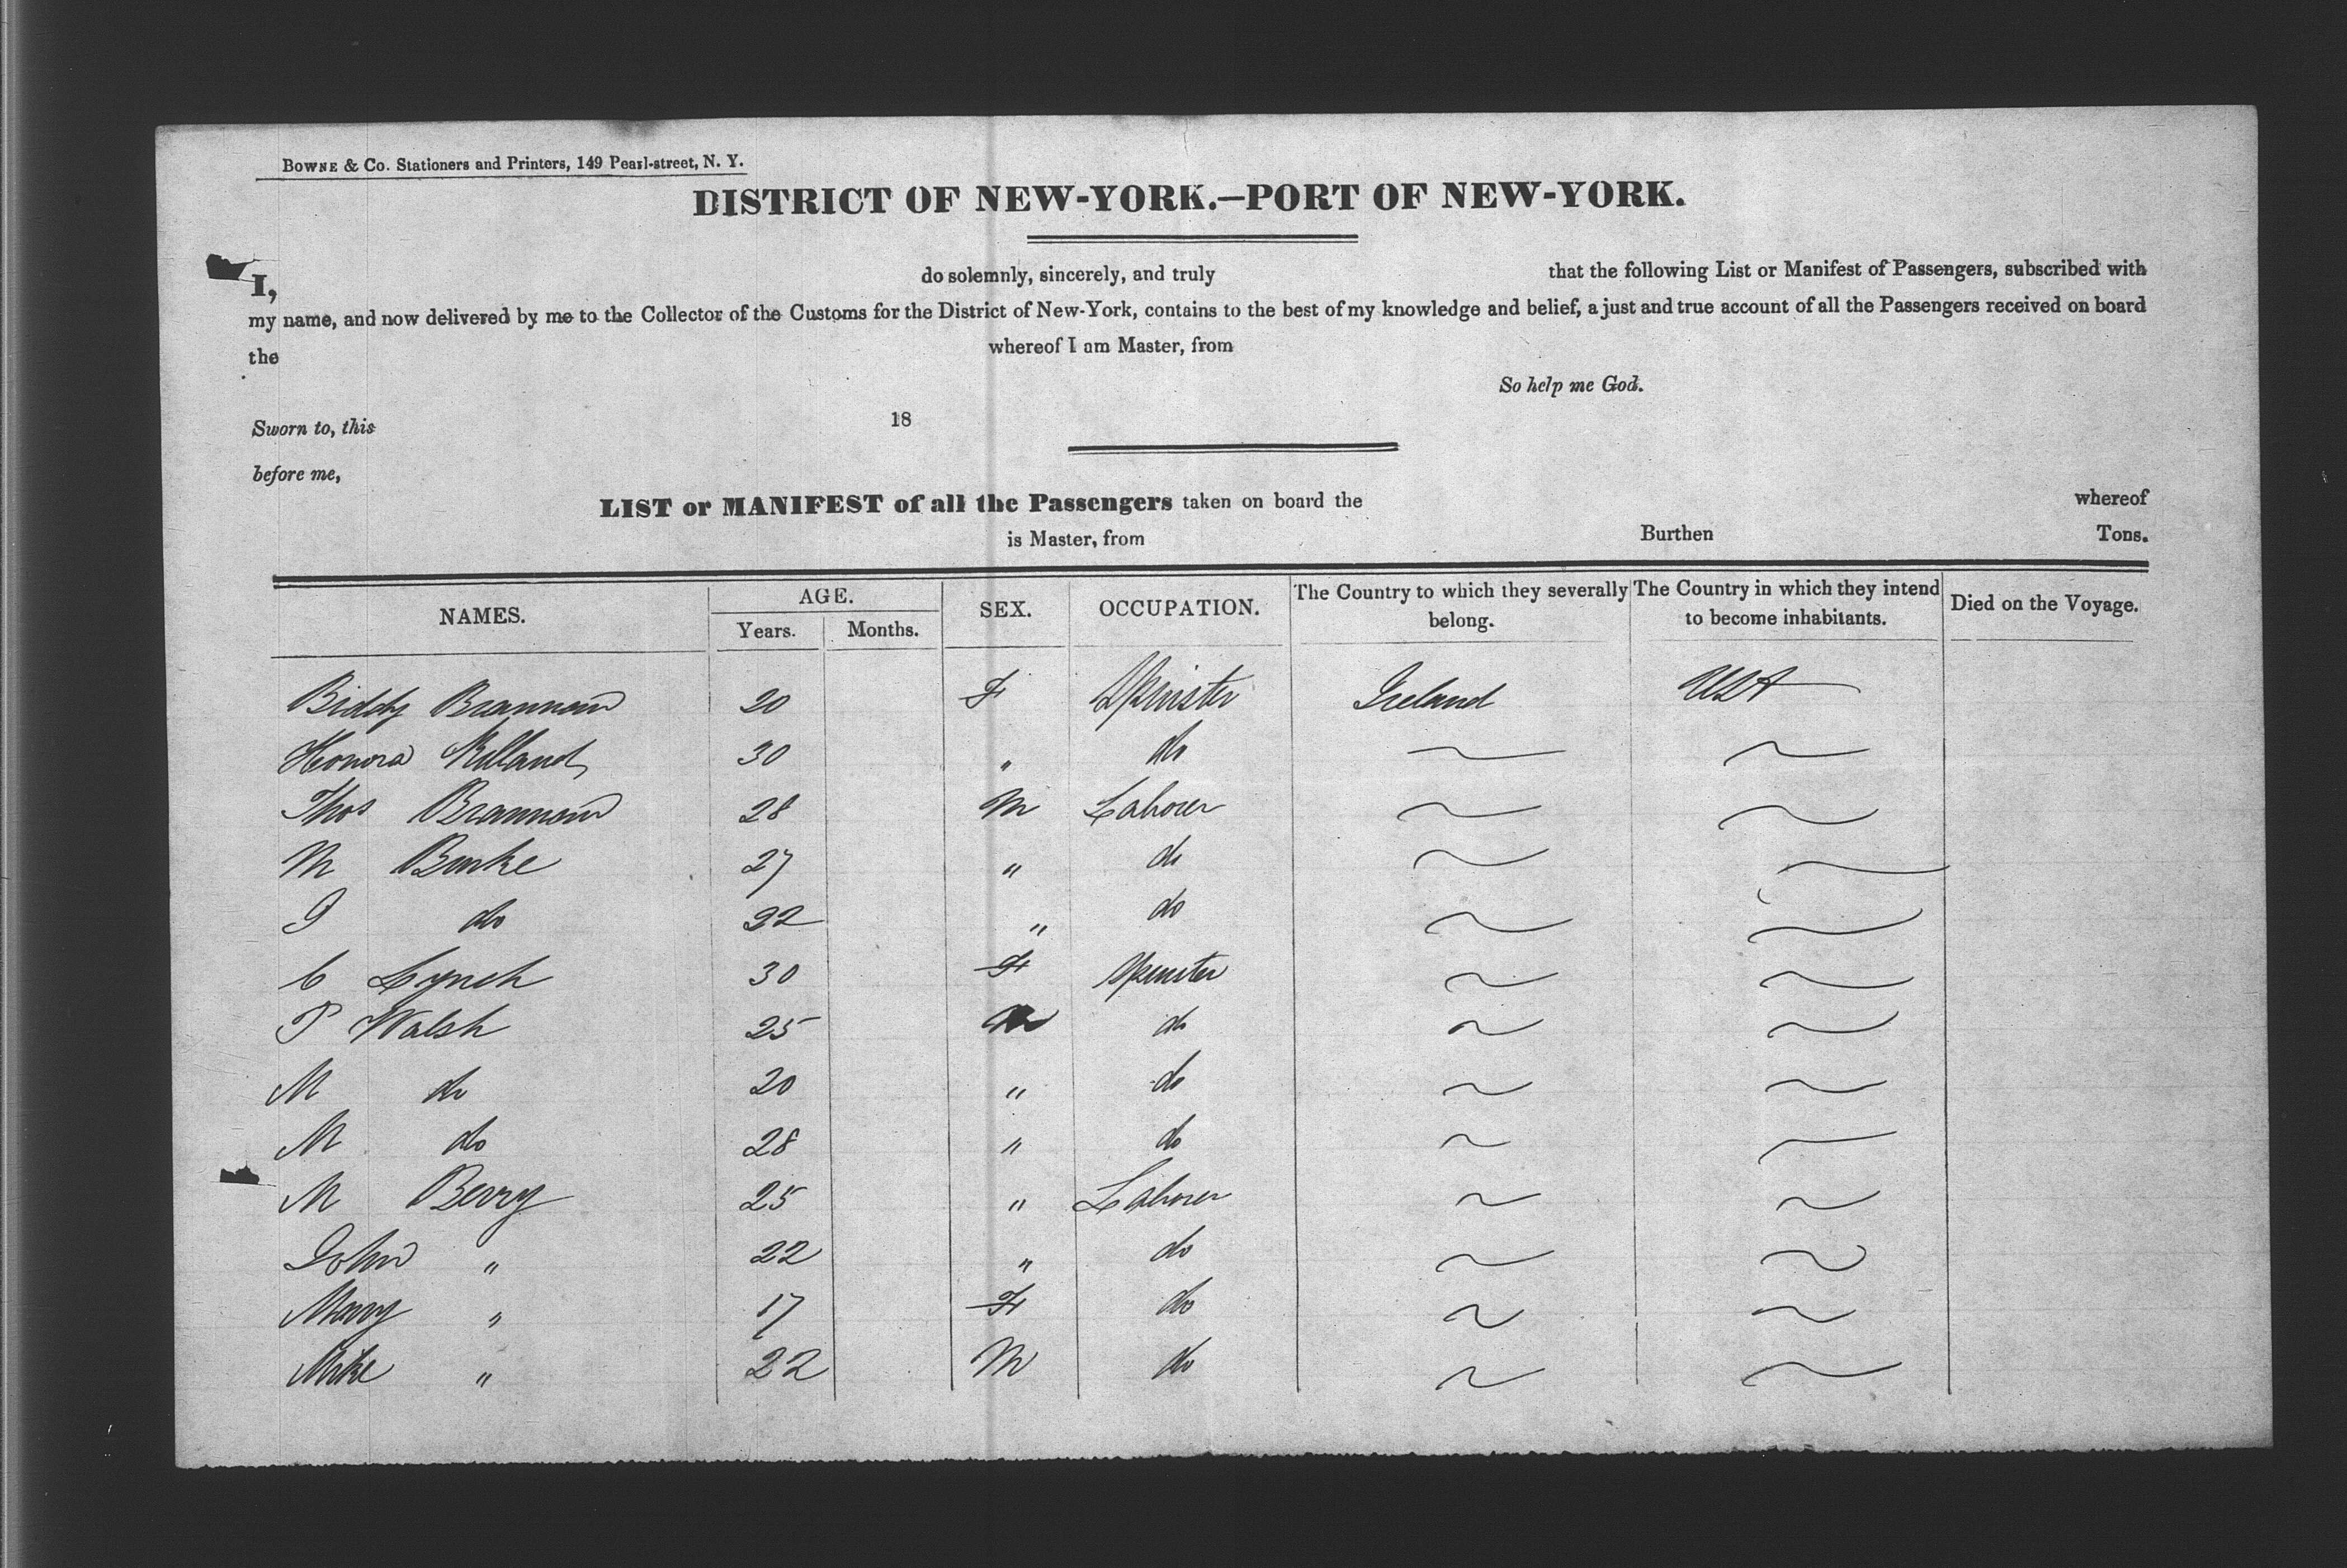 BOWNE & CO. Stationers and Printers, 149 Pearl-street, N. Y.
DISTRICT OF NEW-YORK.—PORT OF NEW-YORK.
I, do solemnly, sincerely, and truly that the following List or Manifest of Passengers, subscribed with
my name, and now delivered by me to the Collector of the Customs for the District of New-York, contains to the best of my knowledge and belief, a just and true account of all the Passengers received on board
the whereof I am Master, from
So help me God.
Sworn to, this 18
before me,
LIST or MANIFEST of all the Passengers taken on board the whereof
is Master, from Burthen Tons.
NAMES. AGE. SEX. OCCUPATION. The Country to which they severally belong. The Country in which they intend to become inhabitants. Died on the Voyage.
Years. Months.
Biddy Brannon 20 F Spinster Ireland USA
Honora 30 " do
Thos Brannon 28 M Laborer
M Burke 27 " do
do 22 " do
C Lynch 30 F Spinster
P Walsh 25 do
M do 20 " do
M do 28 " do
M Berry 25 " Laborer
John " 22 " do
Mary " 17 F do
Mike " 22 M do